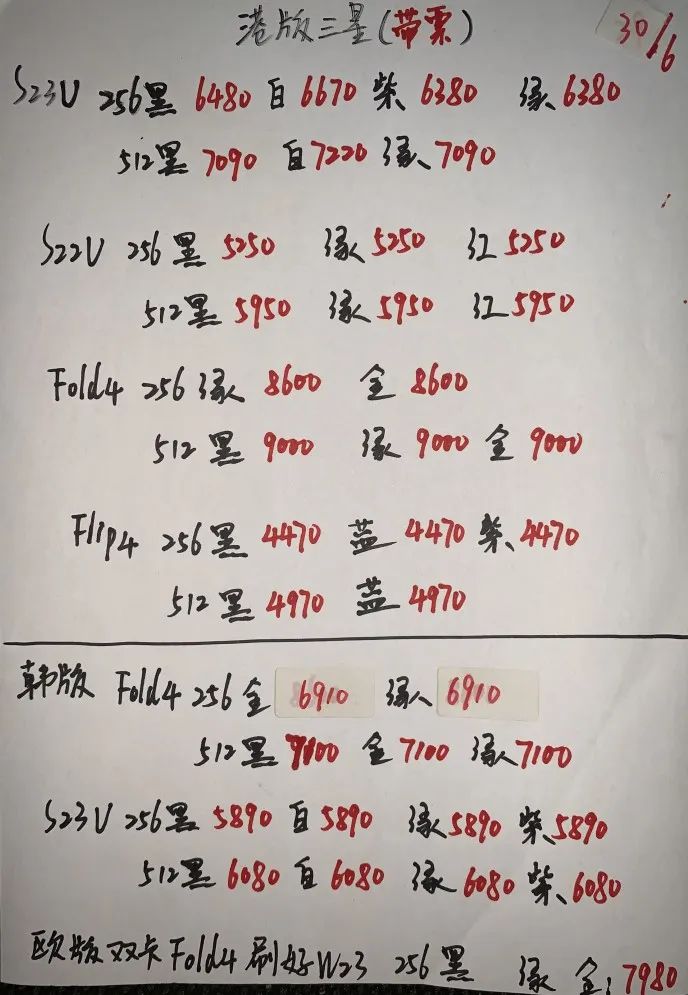 港版三星(带票)
30/6
S23U 256黑 6480 白 6670 紫 6380 绿 6380
512黑 7090 白7220 绿 7090
S22U 256黑 5250 绿 5250 红 5250
512黑 5950 绿 5950 红 5950
Fold4 256 绿 8600 金 8600
512 黑 9000 绿 9000 金 9000
Flip4 256 黑 4470 蓝 4470 紫 4470
512 黑 4970 蓝 4970
韩版 Fold4 256 金 6910 绿 6910
512黑 7100 金 7100 绿 7100
S23U 256黑 5890 白 5890 绿 5890 紫 5890
512黑 6080 白 6080 绿 6080 紫 6080
欧版双卡Fold4刷好W23 256黑 绿 金: 7980